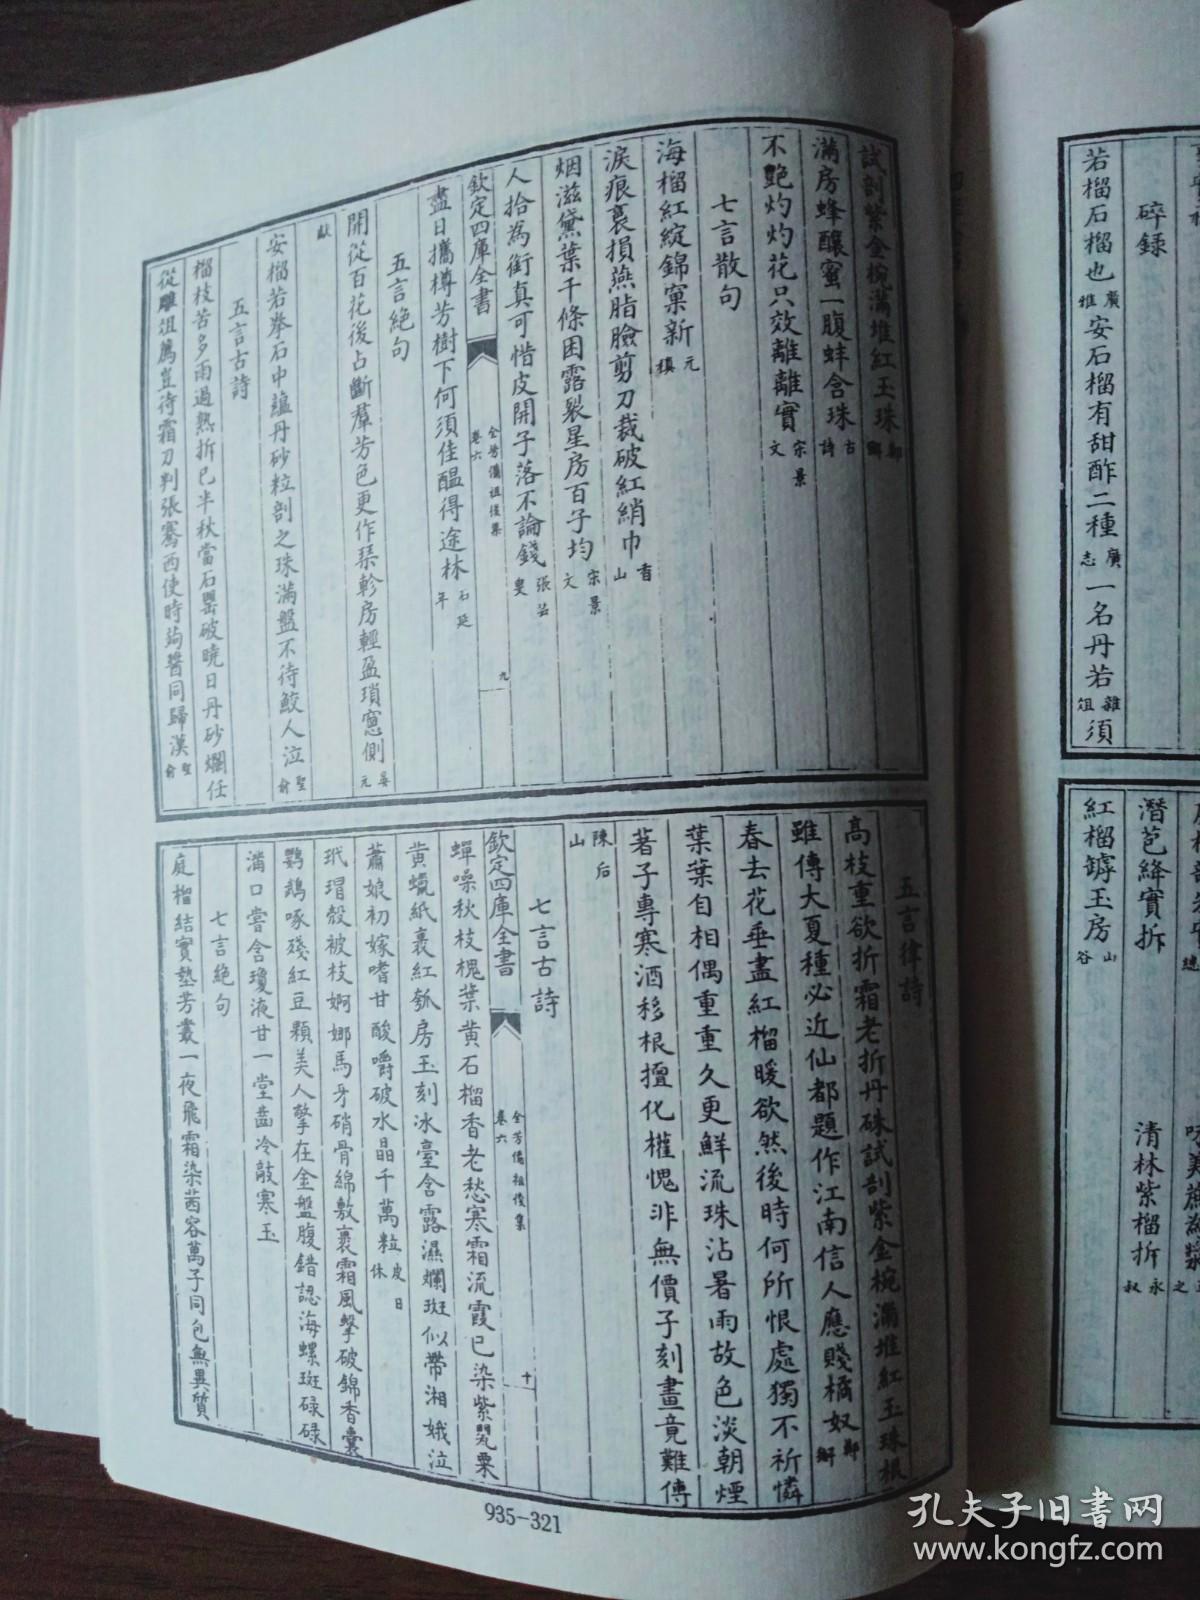 若榴石榴也廣雅安石榴有甜酢二種廣志一名丹若雜俎須
碎録
紅榴罅玉房山谷
潛苞絳實拆
清林紫榴折永叔
試剖紫金椀滿堆紅玉珠鄭獬
滿房蜂釀蜜一腹蚌含珠古詩
不艷灼灼花只效離離實宋景文
七言散句
海榴紅綻錦窠新元稹
淚痕裛損燕脂臉剪刀裁破紅綃巾香山
烟滋黛葉千條困露裂星房百子均宋景文
人拾為銜真可惜皮開子落不論錢張芸叟
欽定四庫全書
全芳備祖後集
卷六
九
盡日攜樽芳樹下何須佳醖得途林石延年
五言絶句
開從百花後占斷羣芳色更作琴軫房輕盈瑣窻側晏元
獻
安榴若拳石中蘊丹砂粒剖之珠滿盤不待鮫人泣聖俞
五言古詩
榴枝苦多雨過熟折已半秋當石罍破曉日丹砂爛任
從雕俎薦豈待霜刀判張騫西使時蒟醬同歸漢聖俞
五言律詩
高枝重欲折霜老折丹硃試剖紫金椀滿堆紅玉珠根
雖傳大夏種必近仙都題作江南信人應賤橘奴鄭獬
春去花垂盡紅榴暖欲然後時何所恨處獨不祈憐
葉葉自相偶重重久更鮮流珠沾暑雨故色淡朝煙
著子專寒酒移根擅化權愧非無價子刻畫竟難傳
陳后山
七言古詩
欽定四庫全書
全芳備祖後集
卷六
十
蟬噪秋枝槐葉黄石榴香老愁寒霜流霞已染紫罌粟
黄蠟紙裹紅瓠房玉刻冰臺含露濕斕斑似帶湘娥泣
蕭娘初嫁嗜甘酸嚼破水晶千萬粒皮日休
玳瑁殻被枝婀娜馬牙硝骨綿敷裹霜風擘破錦香囊
鸚鵡啄殘紅豆顆美人擎在金盤腹錯認海螺斑碌碌
滿口嘗含瓊液甘一堂齒冷敲寒玉
七言絶句
庭榴結實墊芳叢一夜飛霜染茜容萬子同包無異質
935-321
孔夫子旧书网
www.kongfz.com